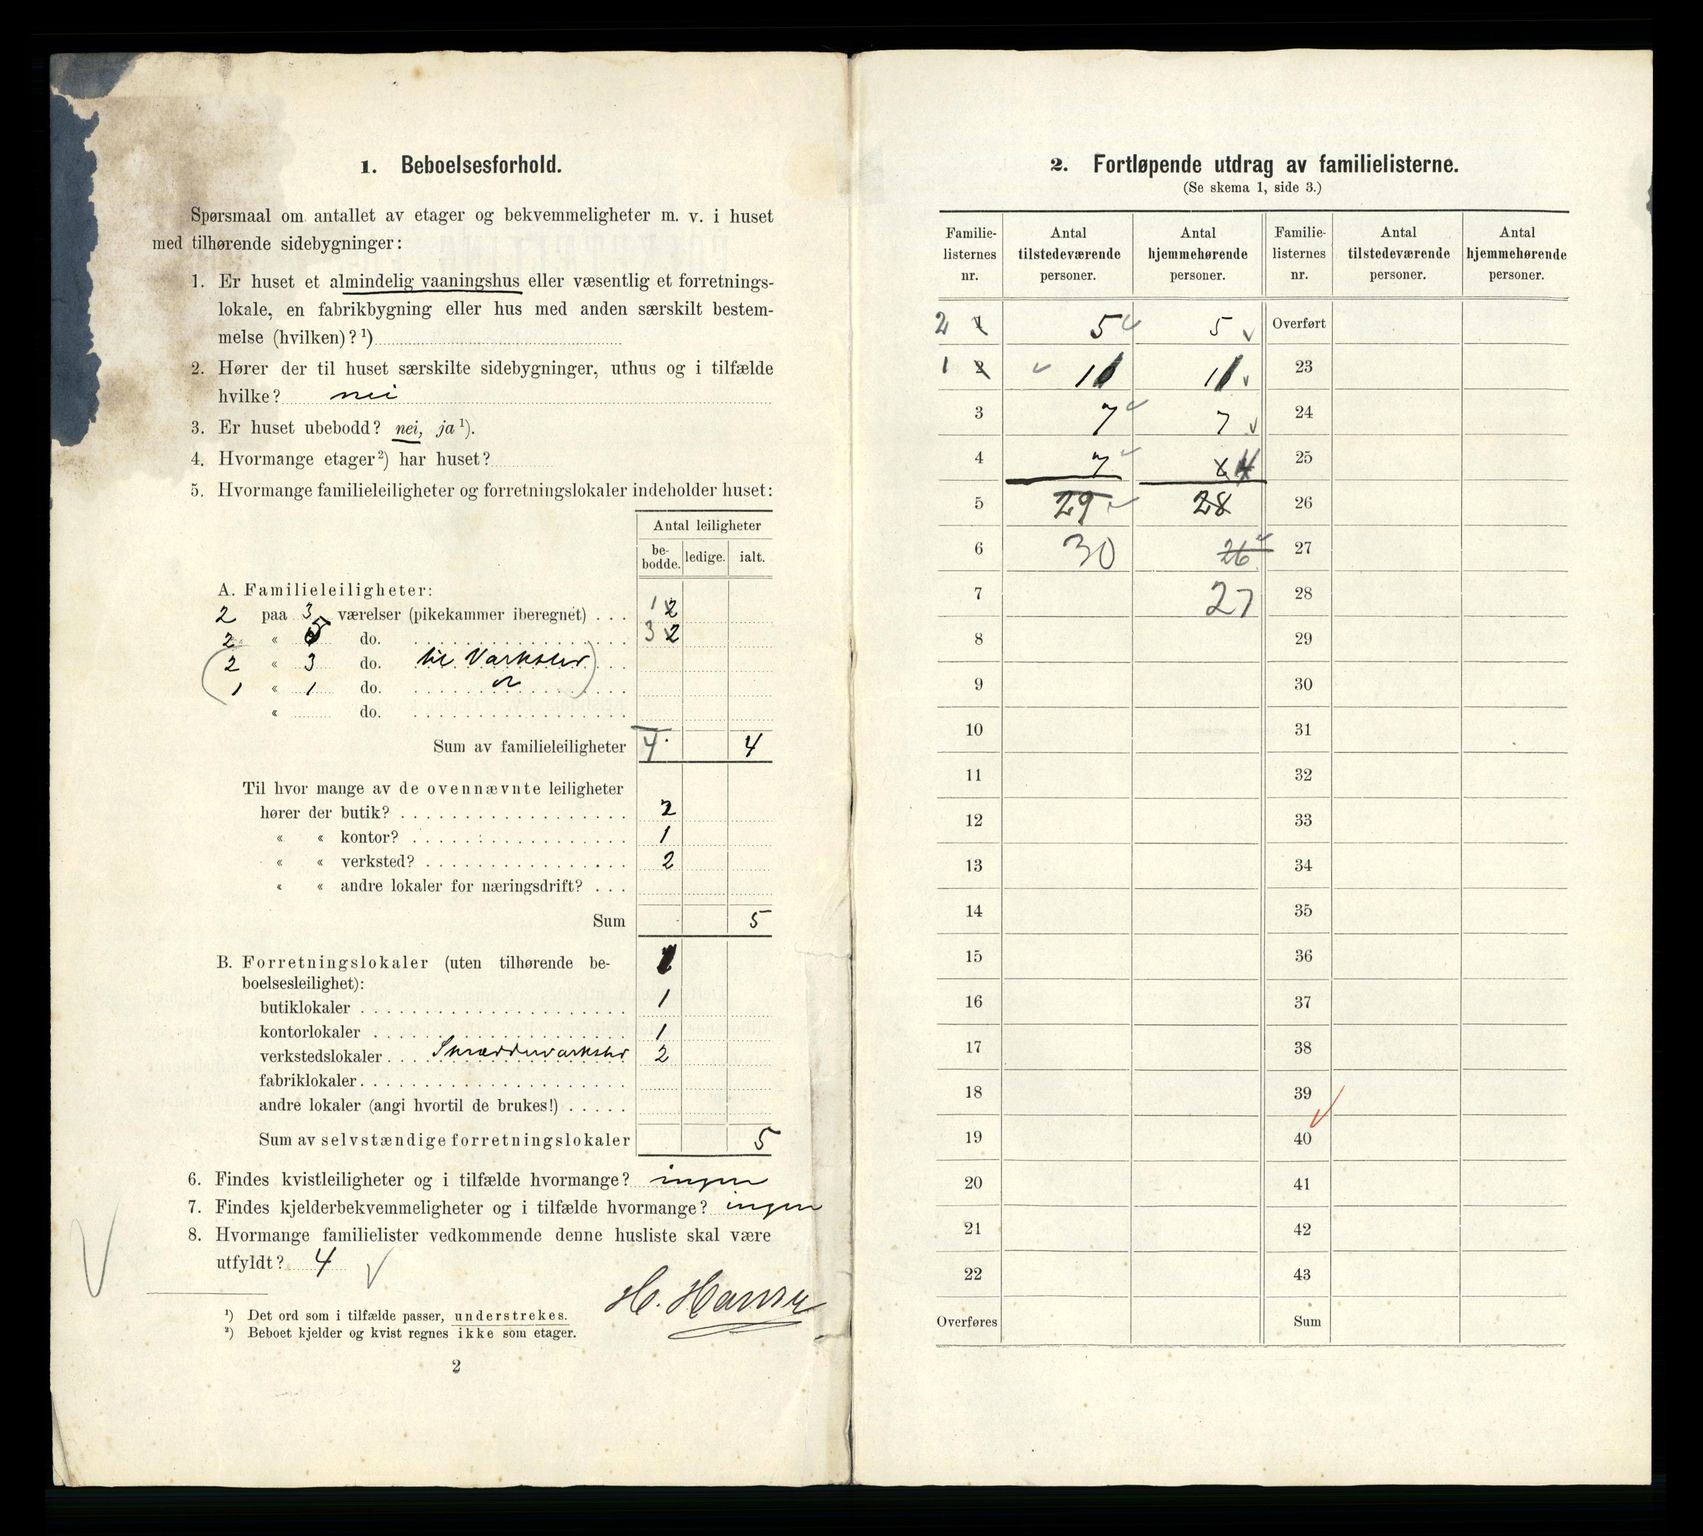 1. Beboelsesforhold.
Spørsmaal om antallet av etager og bekvemmeligheter m. v. i huset
med tilhørende sidebygninger:
1. Er huset et almindelig vaaningshus eller væsentlig et forretnings-
lokale, en fabrikbygning eller hus med anden særskilt bestem-
melse (hvilken)? ¹)
2. Hører der til huset særskilte sidebygninger, uthus og i tilfælde
hvilke? nei
3. Er huset ubebodd? nei, ja ¹).
4. Hvormange etager ²) har huset?
5. Hvormange familieleiligheter og forretningslokaler indeholder huset:
Antal leiligheter
be-bodde. ledige. ialt.
A. Familieleiligheter:
2 paa 3 værelser (pikekammer iberegnet) . . . 1 2
2 « 5 do. 3 2
(2 « 3 do. til Værksted)
1 « 1 do.
« do.
Sum av familieleiligheter 4 4
Til hvor mange av de ovennævnte leiligheter
hører der butik? 2
« « kontor? 1
« « verksted? 2
« « andre lokaler for næringsdrift? . . .
Sum 5
B. Forretningslokaler (uten tilhørende be-
boelsesleilighet):
butiklokaler 1
kontorlokaler 1
verkstedslokaler . . . Skrædderværksted 2
fabriklokaler
andre lokaler (angi hvortil de brukes!)
Sum av selvstændige forretningslokaler 5
6. Findes kvistleiligheter og i tilfælde hvormange? ingen
7. Findes kjelderbekvemmeligheter og i tilfælde hvormange? ingen
8. Hvormange familielister vedkommende denne husliste skal være
utfyldt? 4
H. Hansen
¹) Det ord som i tilfælde passer, understrekes.
²) Beboet kjelder og kvist regnes ikke som etager.
2
2. Fortløpende utdrag av familielisterne.
(Se skema 1, side 3.)
Familie-listernes nr. Antal tilstedeværende personer. Antal hjemmehørende personer. Familie-listernes nr. Antal tilstedeværende personer. Antal hjemmehørende personer.
2 1 5 5 Overført
1 2 11 11 23
3 7 7 24
4 7 4 25
5 29 28 26
6 30 26 27
7 27 28
8 29
9 30
10 31
11 32
12 33
13 34
14 35
15 36
16 37
17 38
18 39
19 40
20 41
21 42
22 43
Overføres Sum